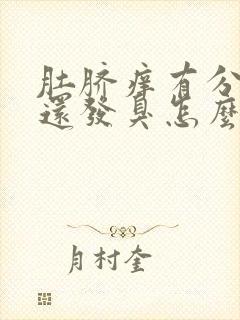 肚脐痒有分
還發臭怎麼
月村奎